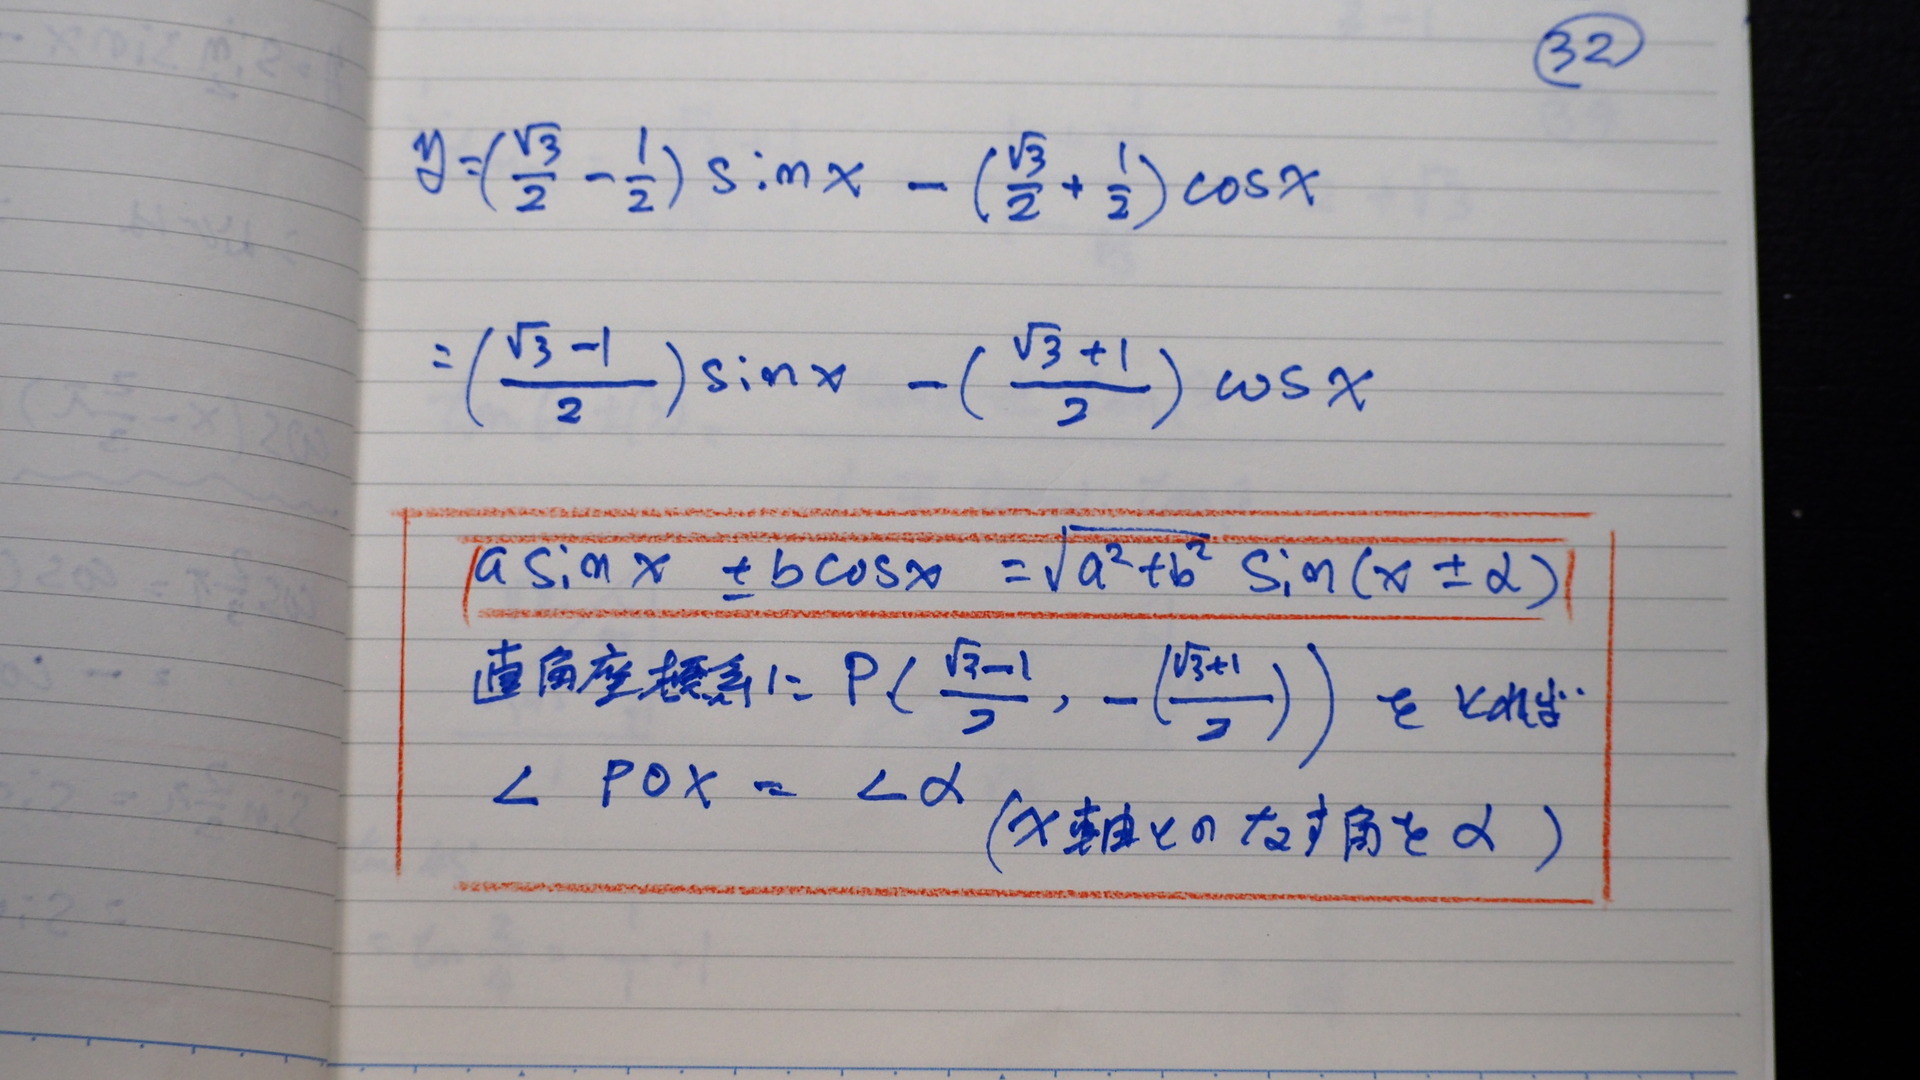 32
y=(√3/2 - 1/2) sin x - (√3/2 + 1/2) cos x
= ((√3-1)/2) sin x - ((√3+1)/2) cos x
a sin x ± b cos x = √(a²+b²) sin(x ± α)
直角座標系に P((√3-1)/2, -((√3+1)/2)) を とれば
∠ POX = ∠α
(X軸との なす角を α)